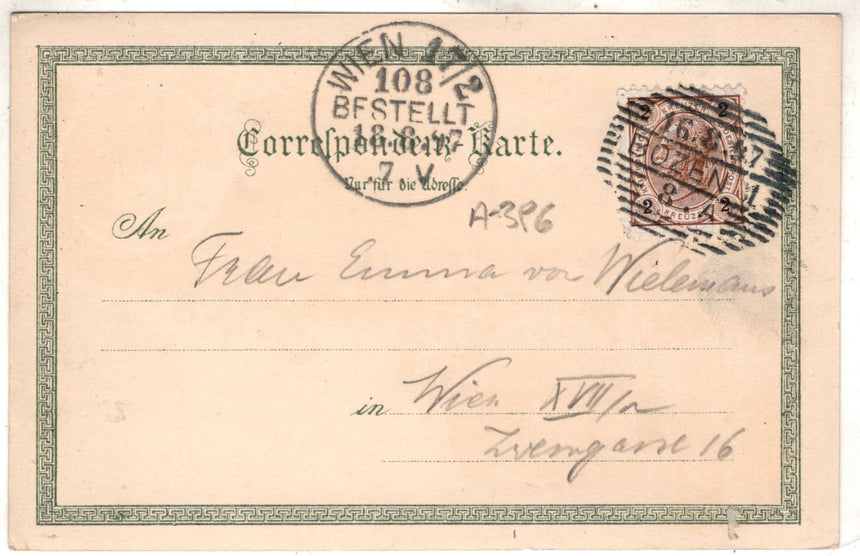 WIEN 17/2
108
BESTELLT
18. 8. 97
.7 V
Correspondenz-Karte.
Nur für die Adresse.
A-396
2 2
16. 8. 97
OZEN
8 1
2 KREUZER 2
An
Frau Emma von Wielemans
in Wien XVIII/2
16